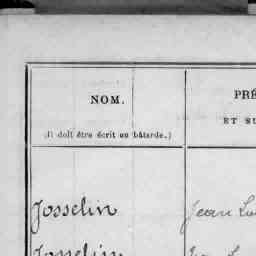 NOM.
(Il doit être écrit en bâtarde.)
PRÉ
ET SU
Josselin
Jean Lu
Josselin